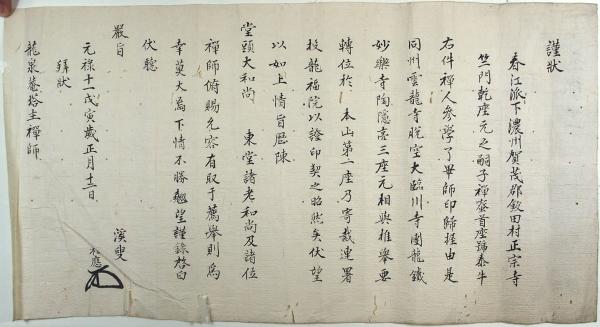 謹狀
春江派下濃州賀茂郡飯田村正宗寺
竺門乾座元之嗣子禪蜜首座諱泰牛
右件禪人參學了畢師印歸握由是
同州雲龍寺脫空大臨川寺團龍鐵
妙樂寺陶隱宗三座元相與推舉要
轉位於 本山第一座乃寄裁連署
投龍福院以證印契之昭然矣伏望
以如上情旨歷陳
堂頭大和尚 東堂諸老和尚及諸位
禪師俯賜允容有取于薦舉則為
幸莫大焉下情不勝翹望謹錄啓白
伏聽
嚴旨
元祿十一戊寅歲正月十二日 溪叟
拜狀
龍泉菴塔主禪師